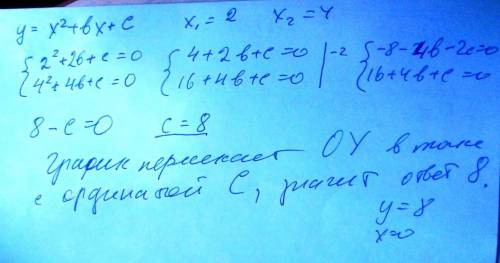 y = x²+bx+c    x₁ = 2    x₂ = 4
{2²+2b+c=0    {4+2b+c=0 |-2    {-8-4b-2c=0
{4²+4b+c=0    {16+4b+c=0    {16+4b+c=0
8-c=0    c=8
График пересекает OY в точке
с ординатой C, значит ответ 8.
y=8
x=0